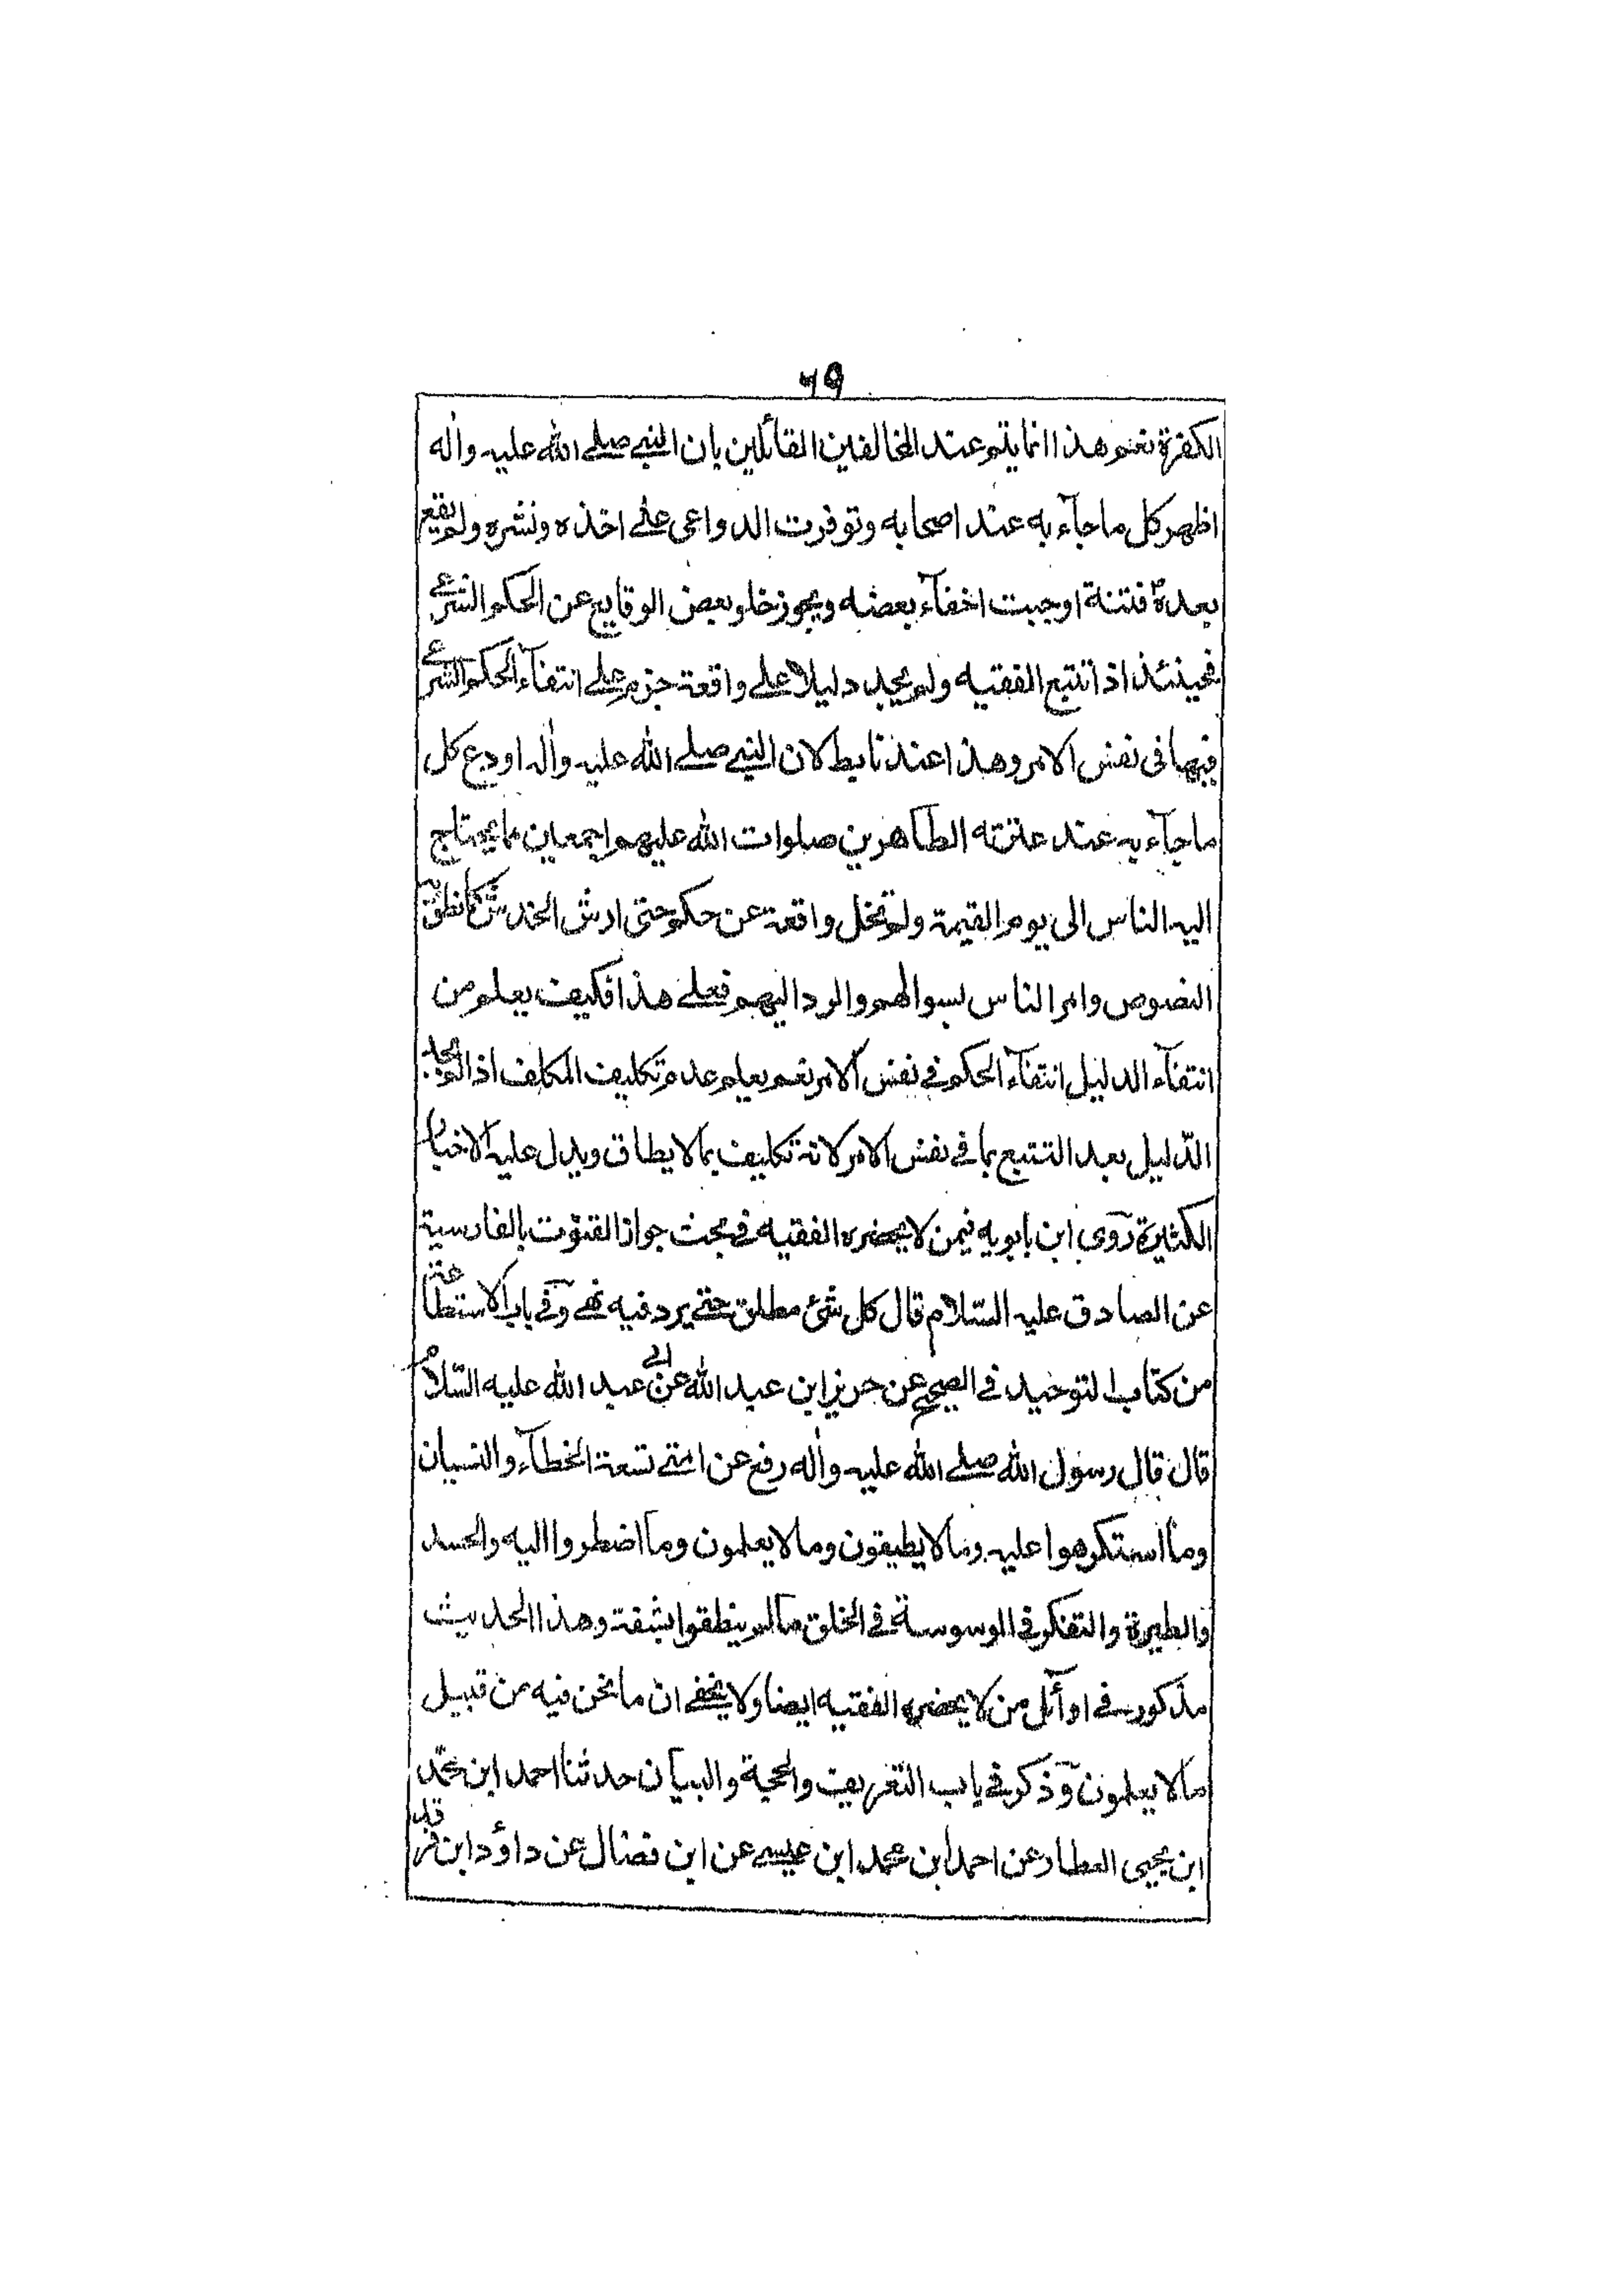 ۶۹
الكفرة نعم هذا انما يتم عند المخالفين القائلين بان النبي صلے الله عليه واٰله
اظهر كل ما جآء به عند اصحابه وتوفرت الدواعى علے اخذه ونشره ولم يقع
بعدهٗ فتنة اوجبت اخفآء بعضه ويجوز خلو بعض الوقايع عن الحكم الشرعے
فحينئذ اذا تتبع الفقيه ولم يجد دليلا علے واقعة جزم علے انتفآء الحكم الشرعے
فيها فى نفس الامر وهذا عندنا بط لان النبي صلے الله عليه واٰله اودع كل
ما جآء به عند عترته الطآهرين صلوات الله عليهم اجمعين مما يحتاج
اليه الناس الى يوم القيمة ولم تخل واقعة عن حكم حتى ارش الخدش كما نطق به
النصوص وامر الناس بسوالهم والرد اليهم فعلے هذا فكيف يعلم من
انتفآء الدليل انتفآء الحكم فے نفس الامر نعم يعلم عدم تكليف المكلف اذا لم يجد
الدّليل بعد التتبع بما فے نفس الامر لانه تكليف بما لا يطاق ويدل عليه الاخبار
الكثيرة روى ابن بابويه فيمن لا يحضره الفقيه فے بحث جواز القنوت بالفارسية
عن الصادق عليه السّلام قال كل شئ مطلق حتے يرد فيه نهے وفے باب الاستطاعة
من كتاب التوحيد فے الصحيح عن حريز ابن عبد الله عن ابے عبد الله عليه السّلام
قال قال رسول الله صلے الله عليه واٰله رفع عن امتے تسعة الخطآء والنسيان
وما استكرهوا عليه وما لا يطيقون وما لا يعلمون وما اضطروا اليه والحسد
والطيرة والتفكر فے الوسوسة فے الخلق ما لم ينطقوا بشفة وهذا الحديث
مذكور فے اوآئل من لا يحضره الفقيه ايضا ولا يخفے ان ما نحن فيه من قبيل
ما لا يعلمون وذكر فے باب التعريف والحجة والبيان حدثنا احمد ابن محمّد
ابن يحيى العطار عن احمد ابن محمد ابن عيسے عن ابن فضال عن داؤد ابن فرقد